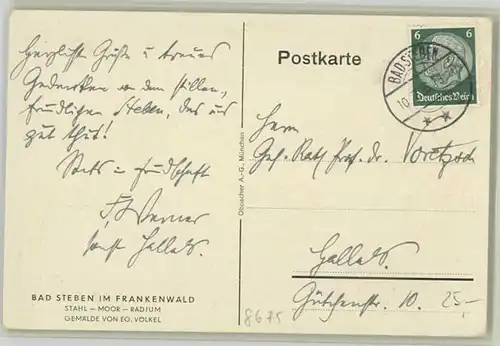 Herzlichste Grüße u. treues
Gedenken an dem stillen,
friedlichen Steben, das uns
gut thut!
Stets in Freundschaft
F. Werner
sonst Halle/S.
BAD STEBEN IM FRANKENWALD
STAHL – MOOR – RADIUM
GEMÄLDE VON EG. VÖLKEL
Obpacher A.-G., München
Postkarte
6 6
Deutsches Reich
BAD STEBEN
10
Herrn
Geh. Rath Prof. Dr. Voretzsch
Halle/S.
Gütchenstr. 10.
25,-
8675